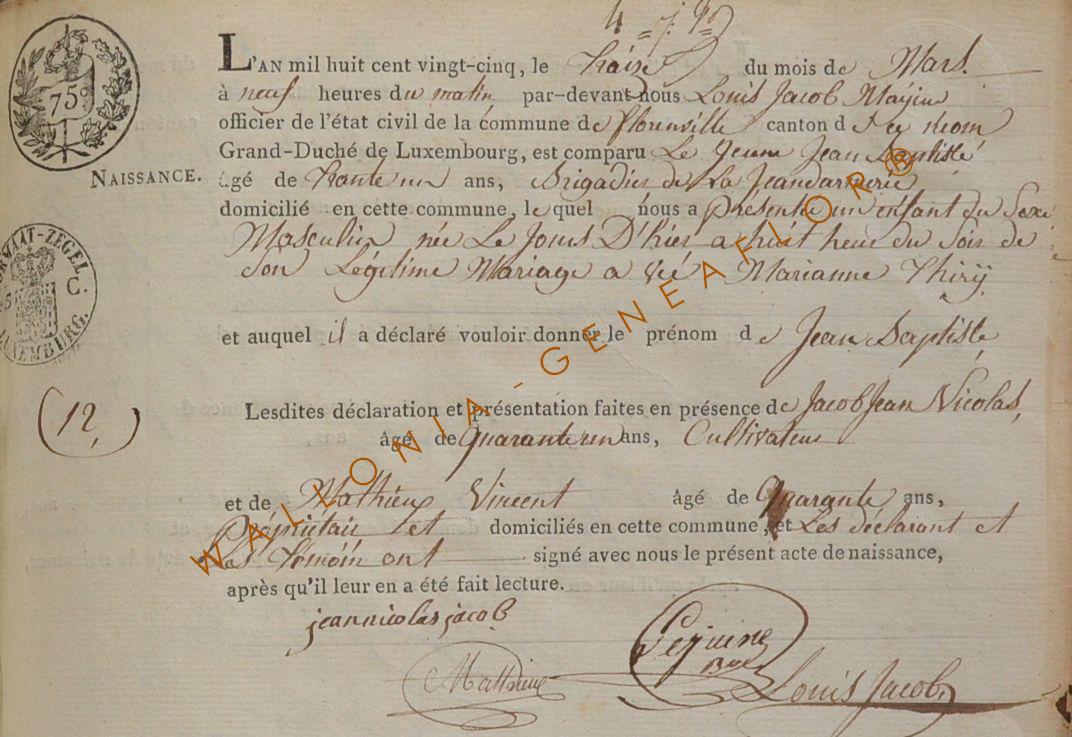 4
75c
L'AN mil huit cent vingt-cinq, le traize du mois de Mars
à neuf heures du matin par-devant nous Louis Jacob
officier de l'état civil de la commune de florenville canton d
Grand-Duché de Luxembourg, est comparu Le Jeune Jean Baptiste
NAISSANCE.
âgé de trante un ans, Brigadier de La Jeandarmerie
domicilié en cette commune, le quel nous a présenté un enfant du Sexe
Masculin née Le Jour D'hier a huit heur du Soir de
Son Légitime Mariage a Marianne Thirÿ
ZEGEL
C.
LUXEMBURG.
et auquel il a déclaré vouloir donner le prénom de Jean Baptiste
(12,)
Lesdites déclaration et présentation faites en présence de Jacob Jean Nicolas,
âgé de Quarante un ans, Cultivateur
et de Mathieu Vincent âgé de Quarante ans,
Propriétair et domiciliés en cette commune, et Les déclarant et
Les témoin ont signé avec nous le présent acte de naissance,
après qu'il leur en a été fait lecture.
jeannicolas jacob
Lejeune
Mathieu
Louis Jacob
WALLONIA-GENEAFLOR®